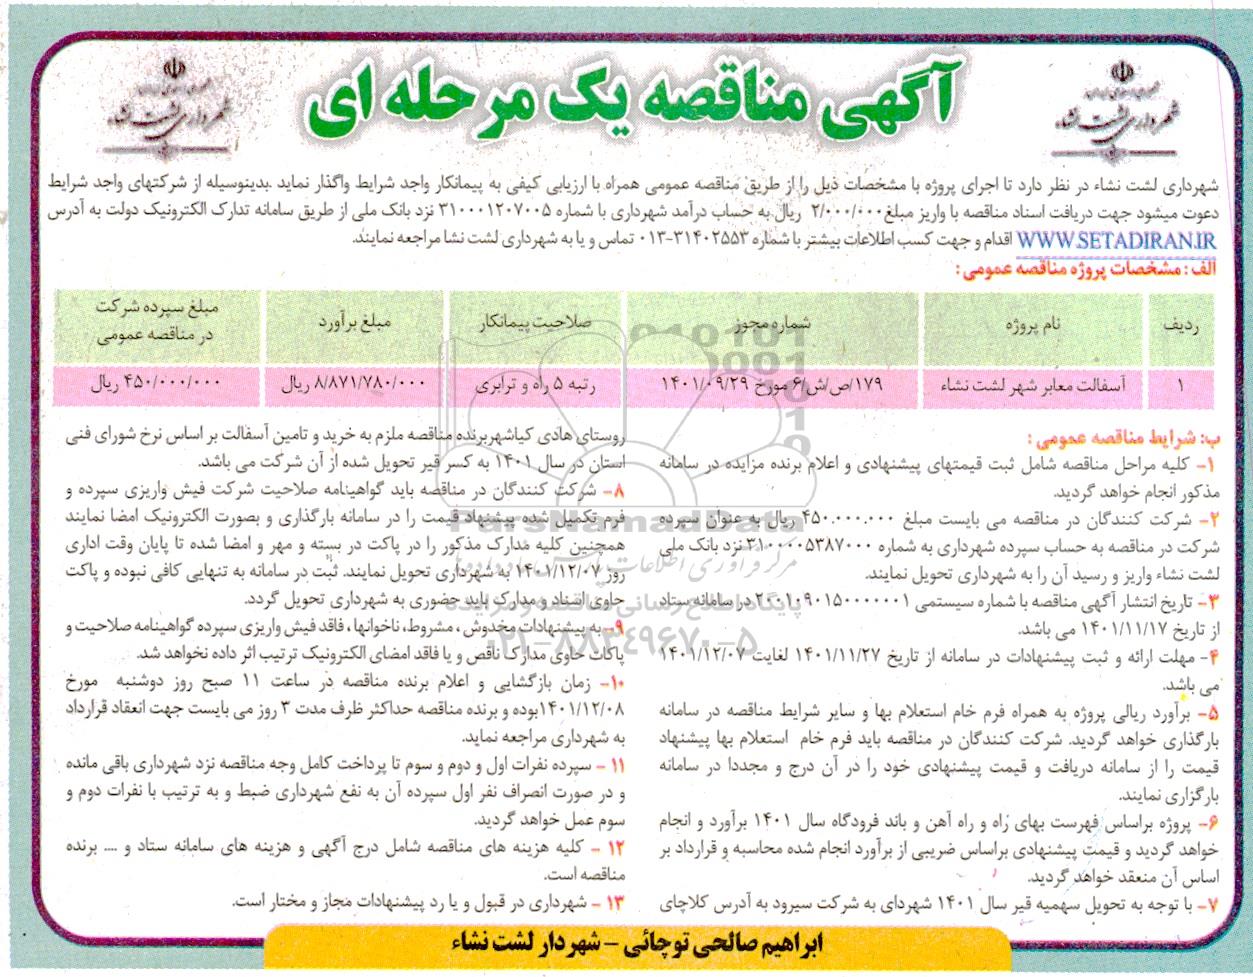 آگهی مناقصه یک مرحله ای
شهرداری لشت نشاء
شهرداری لشت نشاء
شهرداری لشت نشاء در نظر دارد تا اجرای پروژه با مشخصات ذیل را از طریق مناقصه عمومی همراه با ارزیابی کیفی به پیمانکار واجد شرایط واگذار نماید .بدینوسیله از شرکتهای واجد شرایط
دعوت میشود جهت دریافت اسناد مناقصه با واریز مبلغ ۲/۰۰۰/۰۰۰ ریال به حساب درآمد شهرداری با شماره ۳۱۰۰۰۱۲۰۷۰۰۵ نزد بانک ملی از طریق سامانه تدارک الکترونیک دولت به آدرس
WWW.SETADIRAN.IR اقدام و جهت کسب اطلاعات بیشتر با شماره ۳۱۴۰۲۵۵۳-۰۱۳ تماس و یا به شهرداری لشت نشا مراجعه نمایند.
الف : مشخصات پروژه مناقصه عمومی :
ردیف نام پروژه شماره مجوز صلاحیت پیمانکار مبلغ برآورد مبلغ سپرده شرکت
در مناقصه عمومی
۱ آسفالت معابر شهر لشت نشاء ۱۷۹/ص/ش/۶ مورخ ۱۴۰۱/۰۹/۲۹ رتبه ۵ راه و ترابری ۸/۸۷۱/۷۸۰/۰۰۰ ریال ۴۵۰/۰۰۰/۰۰۰ ریال
ب: شرایط مناقصه عمومی :
۱- کلیه مراحل مناقصه شامل ثبت قیمتهای پیشنهادی و اعلام برنده مزایده در سامانه
مذکور انجام خواهد گردید.
۲- شرکت کنندگان در مناقصه می بایست مبلغ ۴۵۰.۰۰۰.۰۰۰ ریال به عنوان سپرده
شرکت در مناقصه به حساب سپرده شهرداری به شماره ۳۱۰۰۰۰۵۳۸۷۰۰۰ نزد بانک ملی
لشت نشاء واریز و رسید آن را به شهرداری تحویل نمایند.
۳- تاریخ انتشار آگهی مناقصه با شماره سیستمی ۲۰۰۱۰۹۰۱۵۰۰۰۰۰۰۱ در سامانه ستاد
از تاریخ ۱۴۰۱/۱۱/۱۷ می باشد.
۴- مهلت ارائه و ثبت پیشنهادات در سامانه از تاریخ ۱۴۰۱/۱۱/۲۷ لغایت ۱۴۰۱/۱۲/۰۷
می باشد.
۵- برآورد ریالی پروژه به همراه فرم خام استعلام بها و سایر شرایط مناقصه در سامانه
بارگذاری خواهد گردید. شرکت کنندگان در مناقصه باید فرم خام استعلام بها پیشنهاد
قیمت را از سامانه دریافت و قیمت پیشنهادی خود را در آن درج و مجددا در سامانه
بارگزاری نمایند.
۶- پروژه براساس فهرست بهای راه و راه آهن و باند فرودگاه سال ۱۴۰۱ برآورد و انجام
خواهد گردید و قیمت پیشنهادی براساس ضریبی از برآورد انجام شده محاسبه و قرارداد بر
اساس آن منعقد خواهد گردید.
۷- با توجه به تحویل سهمیه قیر سال ۱۴۰۱ شهردای به شرکت سیرود به آدرس کلاچای
روستای هادی کیاشهربرنده مناقصه ملزم به خرید و تامین آسفالت بر اساس نرخ شورای فنی
استان در سال ۱۴۰۱ به کسر قیر تحویل شده از آن شرکت می باشد.
۸- شرکت کنندگان در مناقصه باید گواهینامه صلاحیت شرکت فیش واریزی سپرده و
فرم تکمیل شده پیشنهاد قیمت را در سامانه بارگذاری و بصورت الکترونیک امضا نمایند
همچنین کلیه مدارک مذکور را در پاکت در بسته و مهر و امضا شده تا پایان وقت اداری
روز ۱۴۰۱/۱۲/۰۷ به شهرداری تحویل نمایند. ثبت در سامانه به تنهایی کافی نبوده و پاکت
حاوی اسناد و مدارک باید حضوری به شهرداری تحویل گردد.
۹- به پیشنهادات مخدوش ، مشروط، ناخوانها ، فاقد فیش واریزی سپرده گواهینامه صلاحیت و
پاکات حاوی مدارک ناقص و یا فاقد امضای الکترونیک ترتیب اثر داده نخواهد شد.
۱۰- زمان بازگشایی و اعلام برنده مناقصه در ساعت ۱۱ صبح روز دوشنبه مورخ
۱۴۰۱/۱۲/۰۸بوده و برنده مناقصه حداکثر ظرف مدت ۳ روز می بایست جهت انعقاد قرارداد
به شهرداری مراجعه نماید.
۱۱ - سپرده نفرات اول و دوم و سوم تا پرداخت کامل وجه مناقصه نزد شهرداری باقی مانده
و در صورت انصراف نفر اول سپرده آن به نفع شهرداری ضبط و به ترتیب با نفرات دوم و
سوم عمل خواهد گردید.
۱۲ - کلیه هزینه های مناقصه شامل درج آگهی و هزینه های سامانه ستاد و .... برنده
مناقصه است.
۱۳ - شهرداری در قبول و یا رد پیشنهادات مجاز و مختار است.
ابراهیم صالحی توچائی - شهردار لشت نشاء
ParsNamadData
۰۲۱-۸۸۳۴۹۶۷۰-۵